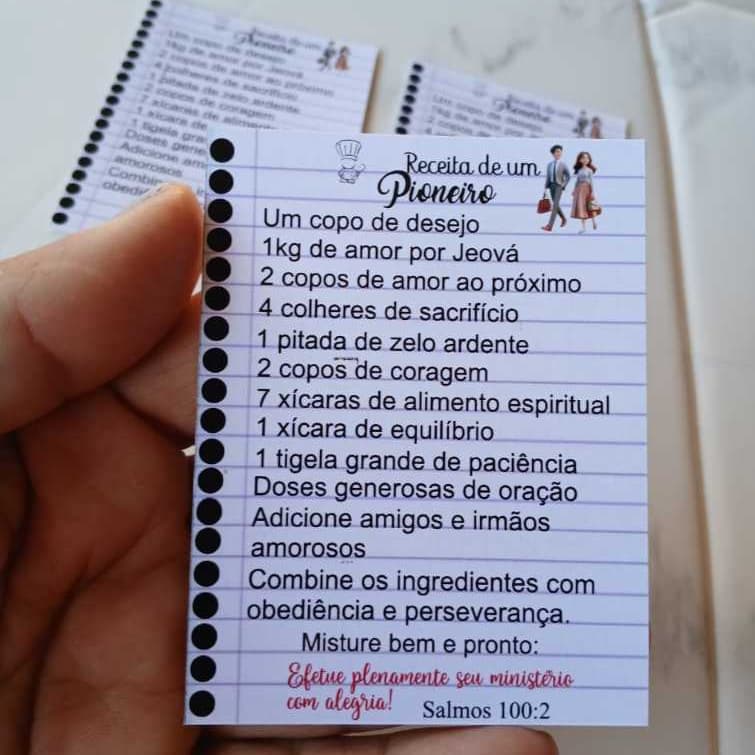 Receita de um
Pioneiro
Um copo de desejo
1kg de amor por Jeová
2 copos de amor ao próximo
4 colheres de sacrifício
1 pitada de zelo ardente
2 copos de coragem
7 xícaras de alimento espiritual
1 xícara de equilíbrio
1 tigela grande de paciência
Doses generosas de oração
Adicione amigos e irmãos
amorosos
Combine os ingredientes com
obediência e perseverança.
Misture bem e pronto:
Efetue plenamente seu ministério
com alegria!
Salmos 100:2